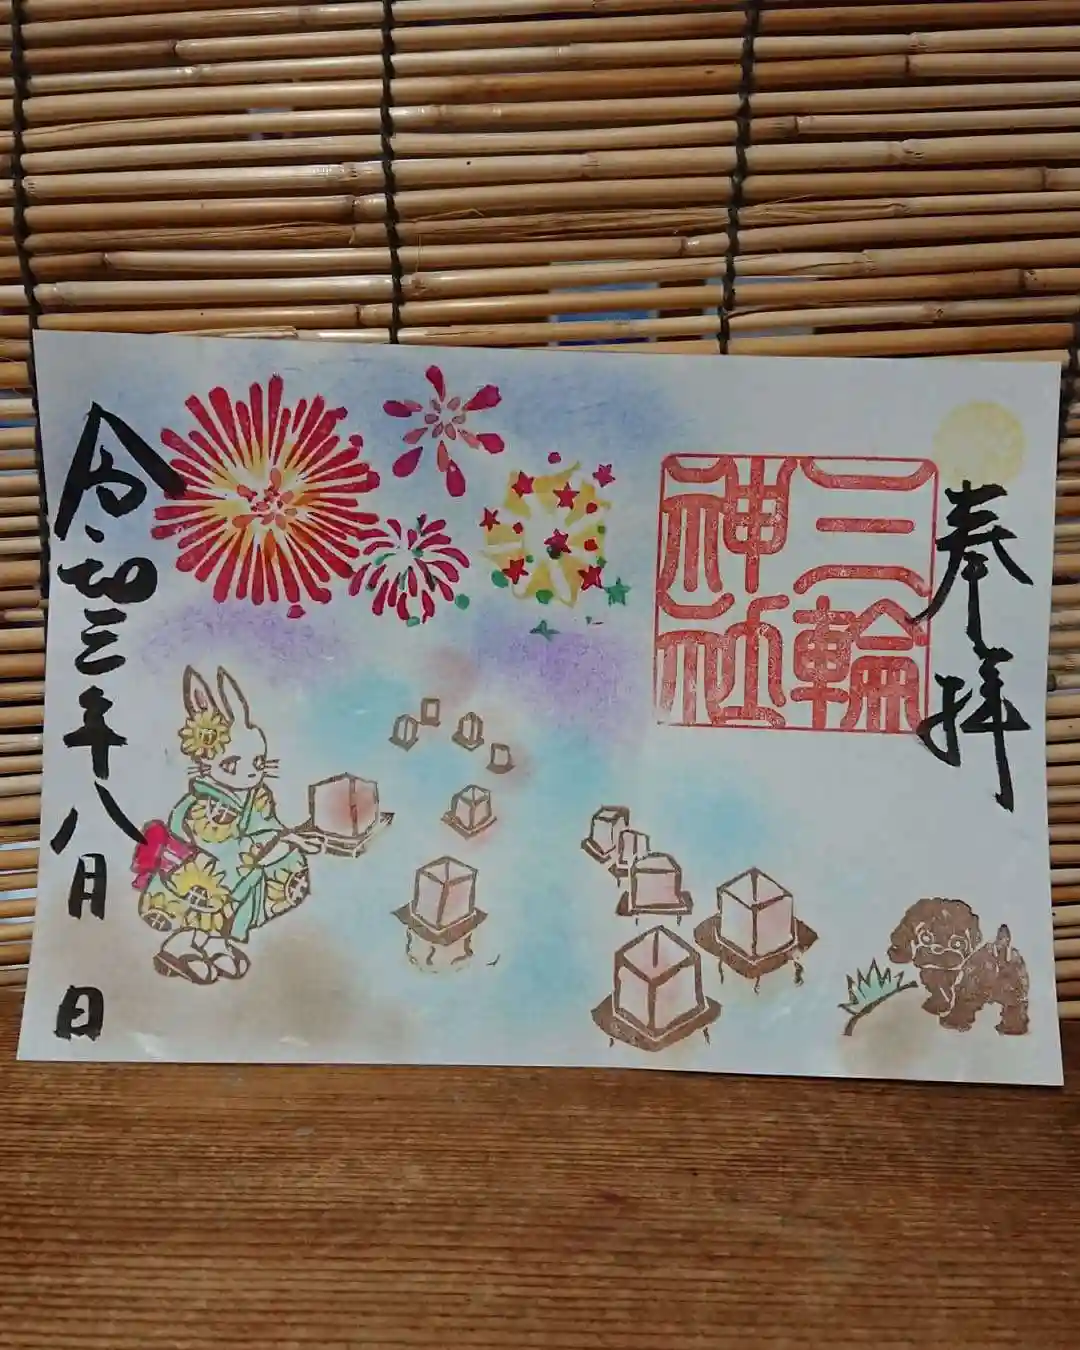 奉拝
三輪
神社
令和三年八月 日